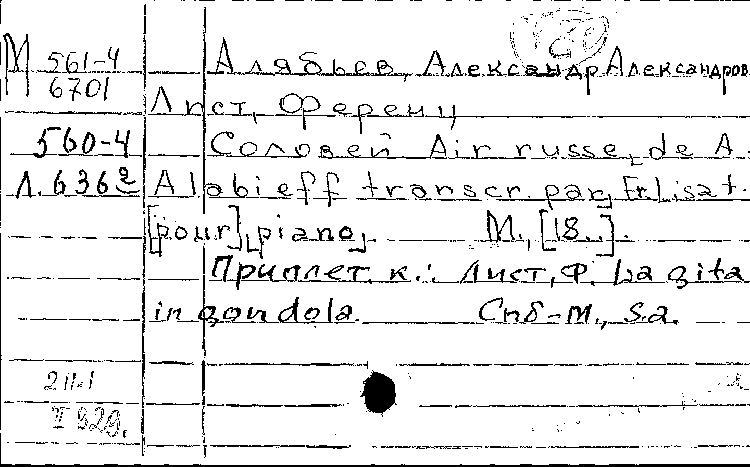 М 561-4 Алябьев, Александр Александров
6701 Лист, Ференц
560-4 Соловей Air russe, de A.
Л. 6369 Alabieff transcr. par Fr. Lisat.
[pour] piano. М., [18..].
Приплет. к.: Лист, Ф. La gita
in gondola. Спб-М., s.a.
211-1
II 929.